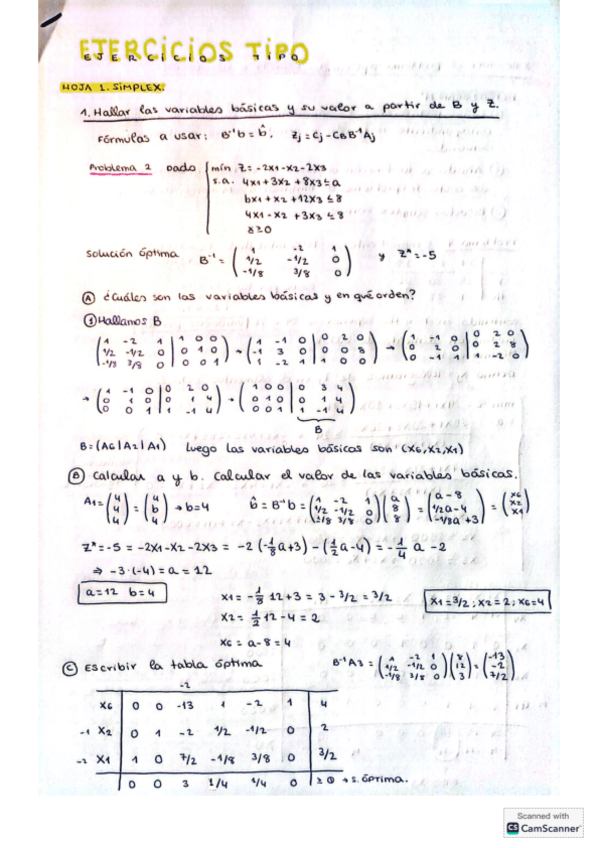 EJERCICIOS TIPO
HOJA 1. SIMPLEX.
1. Hallar las variables básicas y su valor a partir de B y Z.
Fórmulas a usar: B⁻¹b = b̂. Zj = Cj - CBB⁻¹Aj
Problema 2 Dado { min Z = -2x1 - x2 - 2x3
s.a. 4x1 + 3x2 + 8x3 ≤ a
bx1 + x2 + 12x3 ≤ 8
4x1 - x2 + 3x3 ≤ 8
x ≥ 0
Solución óptima B⁻¹ = ( 1 -2 1 ; 1/2 -1/2 0 ; -1/8 3/8 0 ) y Z* = -5
A ¿Cuáles son las variables básicas y en qué orden?
① Hallamos B
( 1 -2 1 | 1 0 0 ; 1/2 -1/2 0 | 0 1 0 ; -1/8 3/8 0 | 0 0 1 ) → ( 1 -1 0 | 0 2 0 ; -1 3 0 | 0 0 8 ; 1 -2 1 | 1 0 0 ) → ( 1 -1 0 | 0 2 0 ; 0 2 0 | 0 2 8 ; 0 -1 1 | 1 -2 0 )
→ ( 1 -1 0 | 0 2 0 ; 0 1 0 | 0 1 4 ; 0 0 1 | 1 -1 4 ) → ( 1 0 0 | 0 3 4 ; 0 1 0 | 0 1 4 ; 0 0 1 | 1 -1 4 )
B
B = (A6 | A2 | A1) luego las variables básicas son (x6, x2, x1)
B Calcular a y b. Calcular el valor de las variables básicas.
A1 = ( 4 ; 4 ; 4 ) = ( 4 ; b ; 4 ) → b = 4 b̂ = B⁻¹b = ( 1 -2 1 ; 1/2 -1/2 0 ; -1/8 3/8 0 ) ( a ; 8 ; 8 ) = ( a - 8 ; 1/2a - 4 ; -1/8a + 3 ) = ( x6 ; x2 ; x1 )
Z* = -5 = -2x1 - x2 - 2x3 = -2 (-1/8 a + 3) - (1/2 a - 4) = -1/4 a - 2
⇒ -3·(-4) = a = 12
a = 12 b = 4
x1 = -1/8 12 + 3 = 3 - 3/2 = 3/2
x1 = 3/2 ; x2 = 2 ; x6 = 4
x2 = 1/2 12 - 4 = 2
x6 = a - 8 = 4
C Escribir la tabla óptima B⁻¹A3 = ( 1 -2 1 ; 1/2 -1/2 0 ; -1/8 3/8 0 ) ( 8 ; 12 ; 3 ) = ( -13 ; -2 ; 7/2 )
-2
x6 0 0 -13 1 -2 1 4
-1 x2 0 1 -2 1/2 -1/2 0 2
-2 x1 1 0 7/2 -1/8 3/8 0 3/2
0 0 3 1/4 1/4 0 ≥ 0 → s. óptima.
Scanned with
CS CamScanner